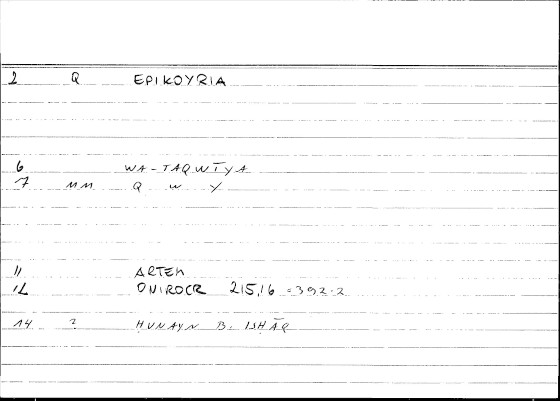 2 Q EPIKOYRIA
6 WA-TAQWĪYA
7 MM Q W Y
11 ARTEM
12 ONIROCR 215,16 = 392.2
14 ? HUNAYN B. ISHĀQ